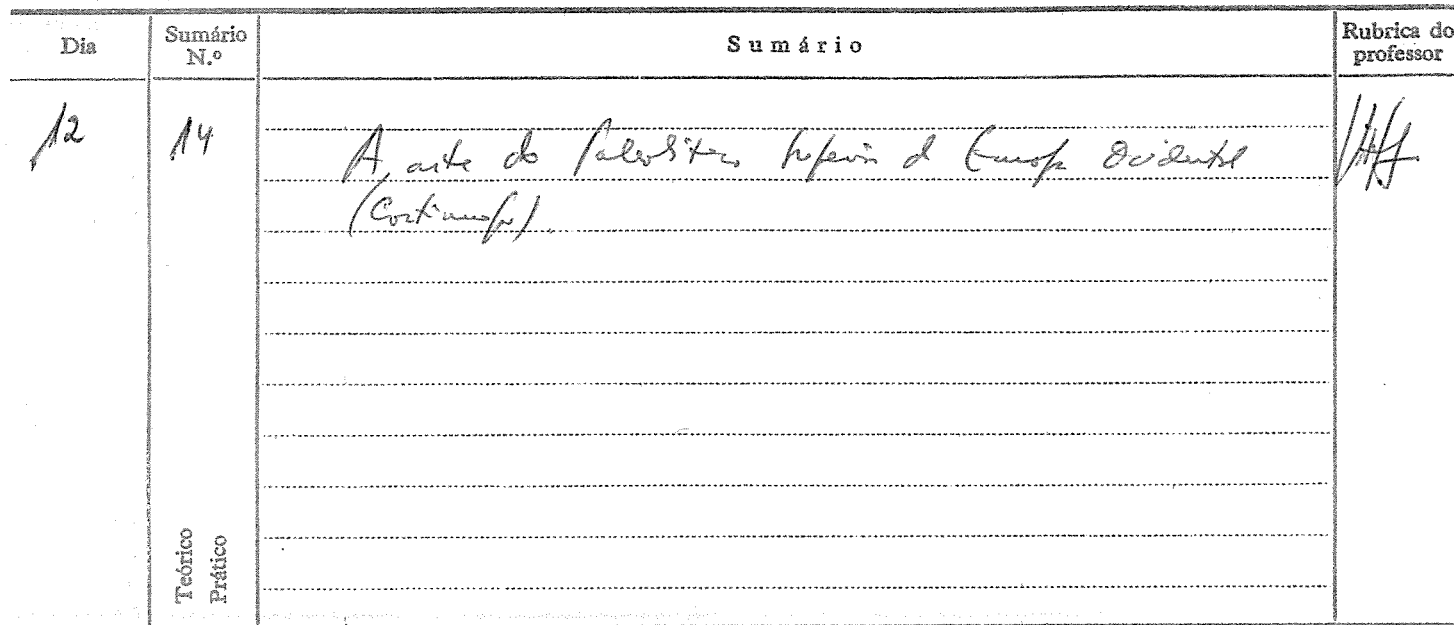 Dia Sumário N.º Sumário Rubrica do professor
12 14 A arte do Paleolítico Superior da Europa Ocidental
(Continuação).
Teórico
Prático